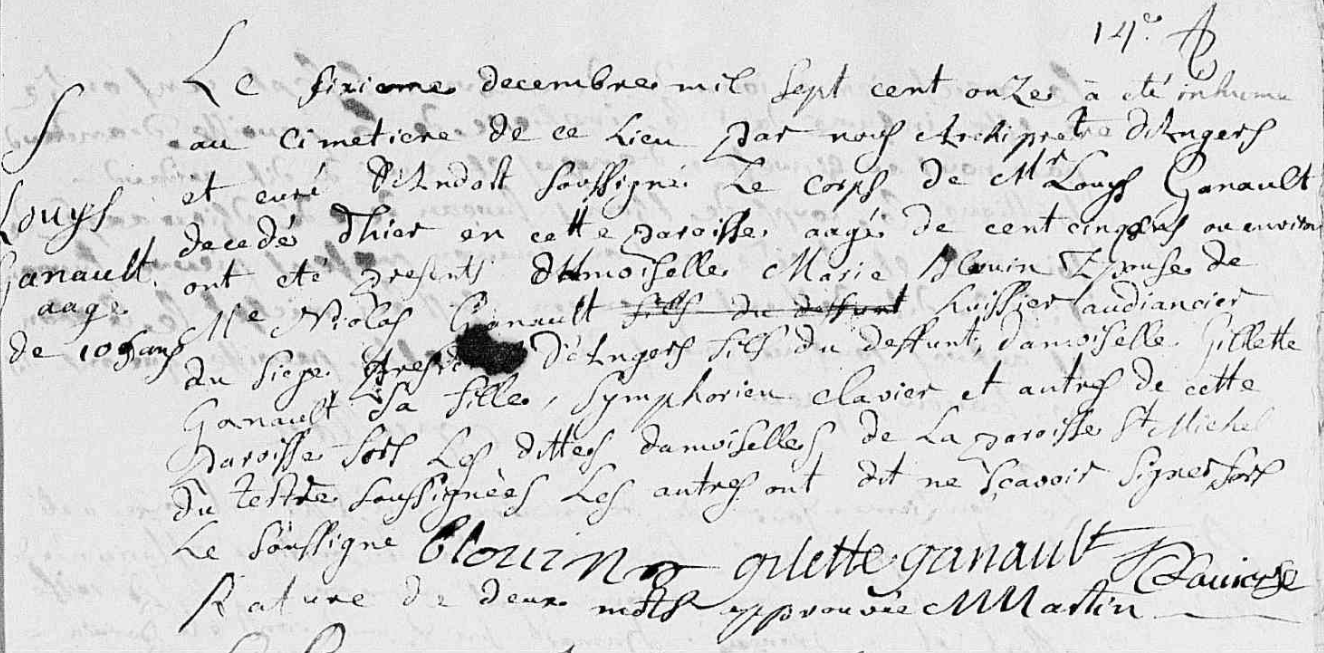 14e
Le sixieme decembre mil sept cent onze a été inhumé
au cimetiere de ce lieu par nous Archipretre d'Angers
et curé d'Andost soussigné Le corps de Mr Louys Ganault
decedé d'hier en cette paroisse aagé de cent cinq ans ou environ
ont été presents damoiselle Marie Blouin Epouse de
Me Nicolas Ganault fils du deffunt huissier audiancier
du siege D'Angers fils du deffunt, damoiselle Gillette
Ganault sa fille, symphorien clavier et autres de cette
paroisse fors Les dittes damoiselles de La paroisse St Michel
du tertre soussignées Les autres ont dit ne sçavoir signer fors
Le soussigné blouin gilette ganault
Rature de deux mots approuvée MMartin
S
Louys
Ganault
aagé
de 105 ans